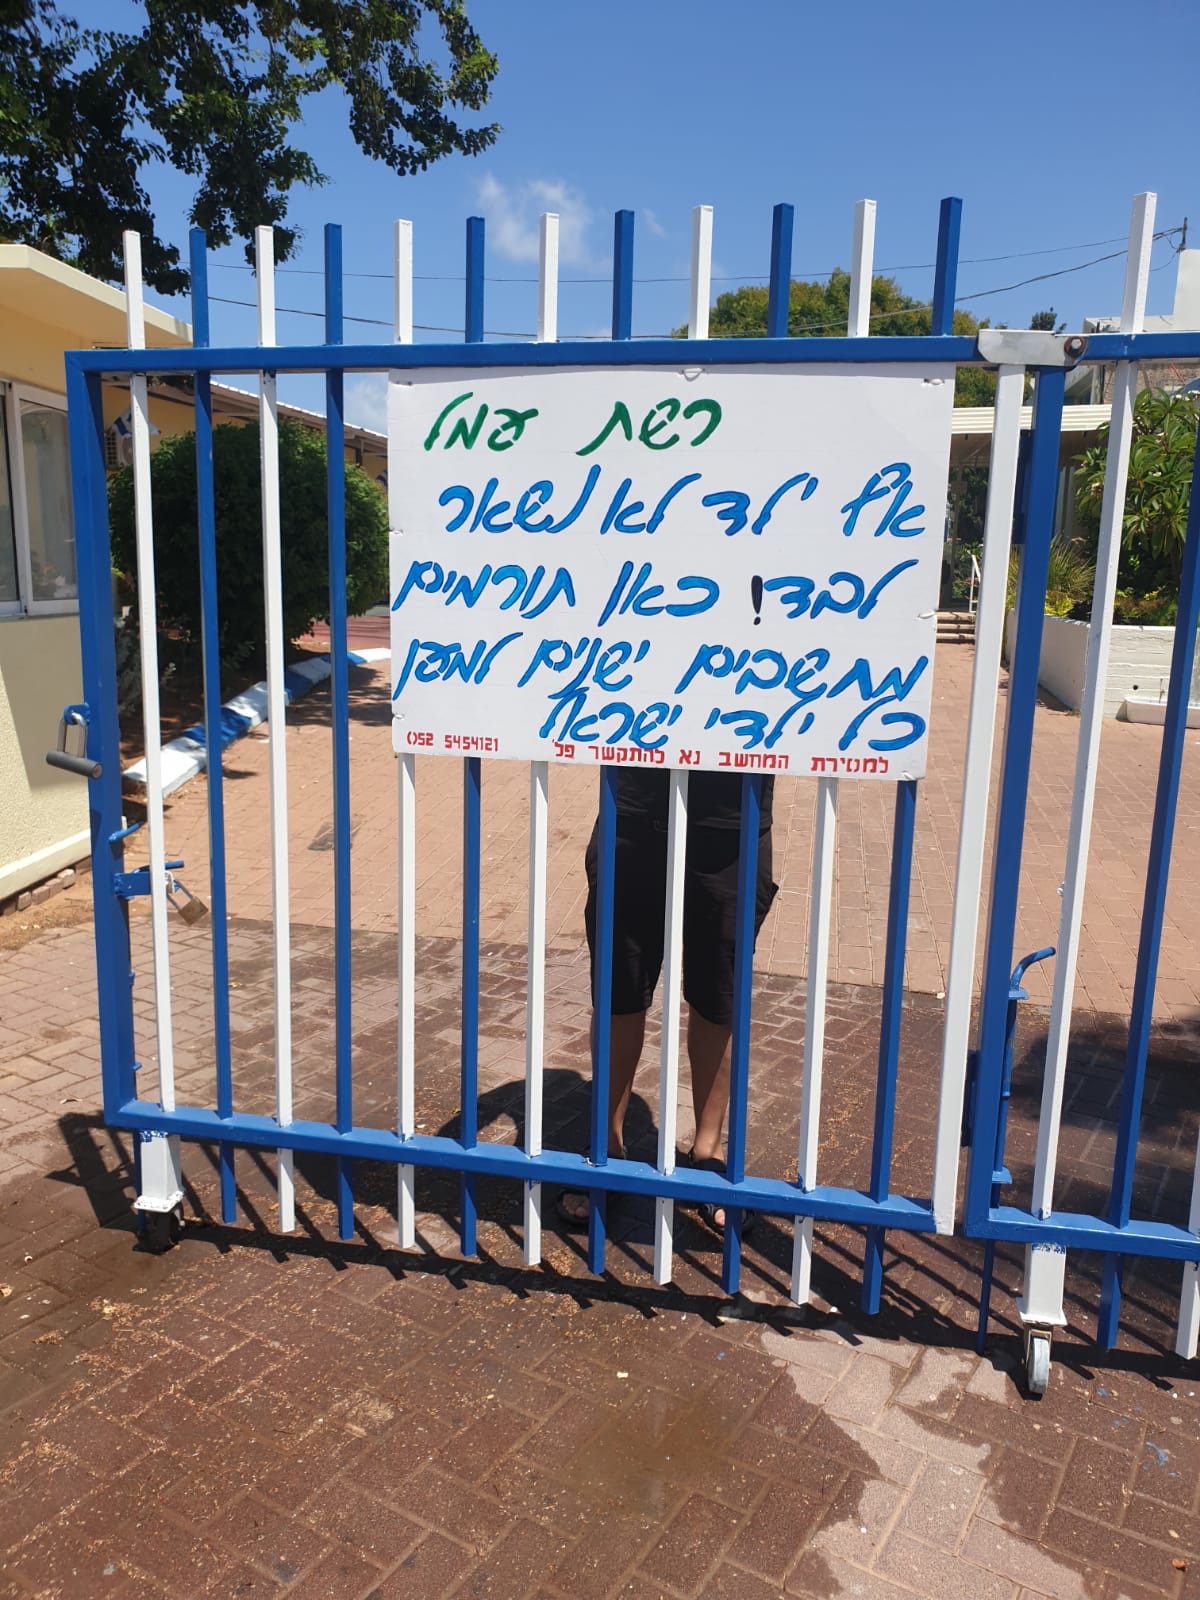 רשת עמל
אף ילד לא נשאר
לבד! כאן תורמים
מחשבים ישנים למען
כל ילדי ישראל
למסירת המחשב נא להתקשר פל' 052 5454121